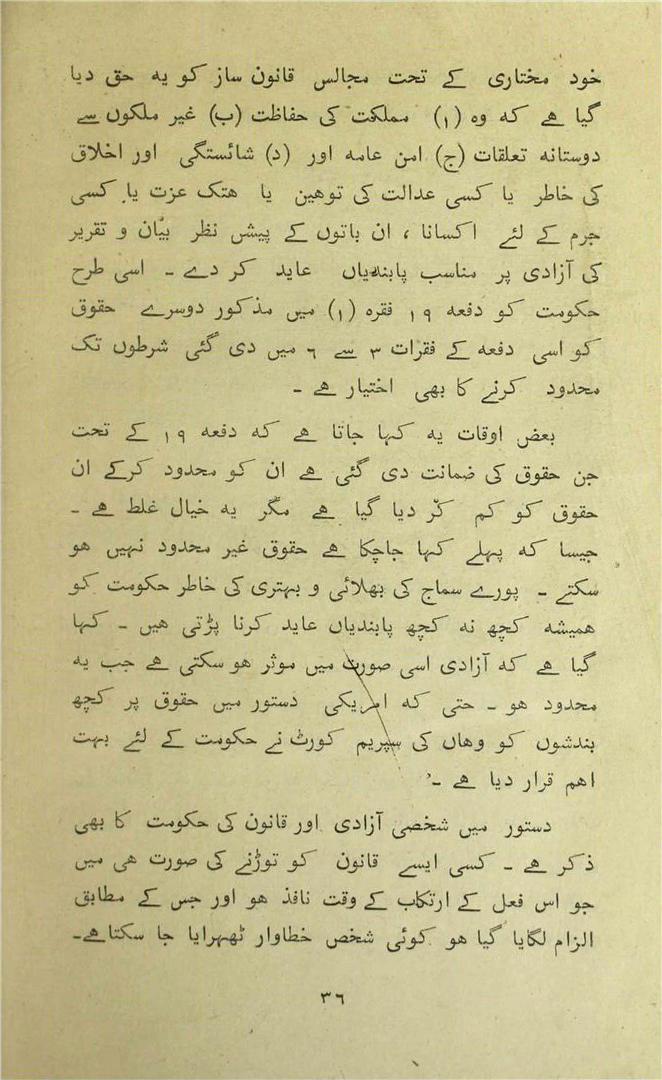 خود مختاری کے تحت مجالس قانون ساز کو یہ حق دیا
گیا ھے کہ وہ (۱) مملکت کی حفاظت (ب) غیر ملکوں سے
دوستانہ تعلقات (ج) امن عامہ اور (د) شائستگی اور اخلاق
کی خاطر یا کسی عدالت کی توھین یا ھتک عزت یا کسی
جرم کے لئے اکسانا ، ان باتوں کے پیش نظر بیان و تقریر
کی آزادی پر مناسب پابندیاں عاید کر دے ـ اسی طرح
حکومت کو دفعہ ۱۹ فقرہ (۱) میں مذکور دوسرے حقوق
کو اسی دفعہ کے فقرات ۳ سے ۶ میں دی گئی شرطوں تک
محدود کرنے کا بھی اختیار ھے ـ
بعض اوقات یہ کہا جاتا ھے کہ دفعہ ۱۹ کے تحت
جن حقوق کی ضمانت دی گئی ھے ان کو محدود کرکے ان
حقوق کو کم کر دیا گیا ھے مگر یہ خیال غلط ھے ـ
جیسا کہ پہلے کہا جاچکا ھے حقوق غیر محدود نہیں ھو
سکتے ـ پورے سماج کی بھلائی و بہتری کی خاطر حکومت کو
ھمیشہ کچھ نہ کچھ پابندیاں عاید کرنا پڑتی ھیں ـ کہا
گیا ھے کہ آزادی اسی صورت میں موثر ھو سکتی ھے جب یہ
محدود ھو ـ حتی کہ امریکی دستور میں حقوق پر کچھ
بندشوں کو وھاں کی سپریم کورٹ نے حکومت کے لئے بہت
اھم قرار دیا ھے ـ
دستور میں شخصی آزادی اور قانون کی حکومت کا بھی
ذکر ھے ـ کسی ایسے قانون کو توڑنے کی صورت ھی میں
جو اس فعل کے ارتکاب کے وقت نافذ ھو اور جس کے مطابق
الزام لگایا گیا ھو کوئی شخص خطاوار ٹھہرایا جا سکتاھے ـ
۳۶